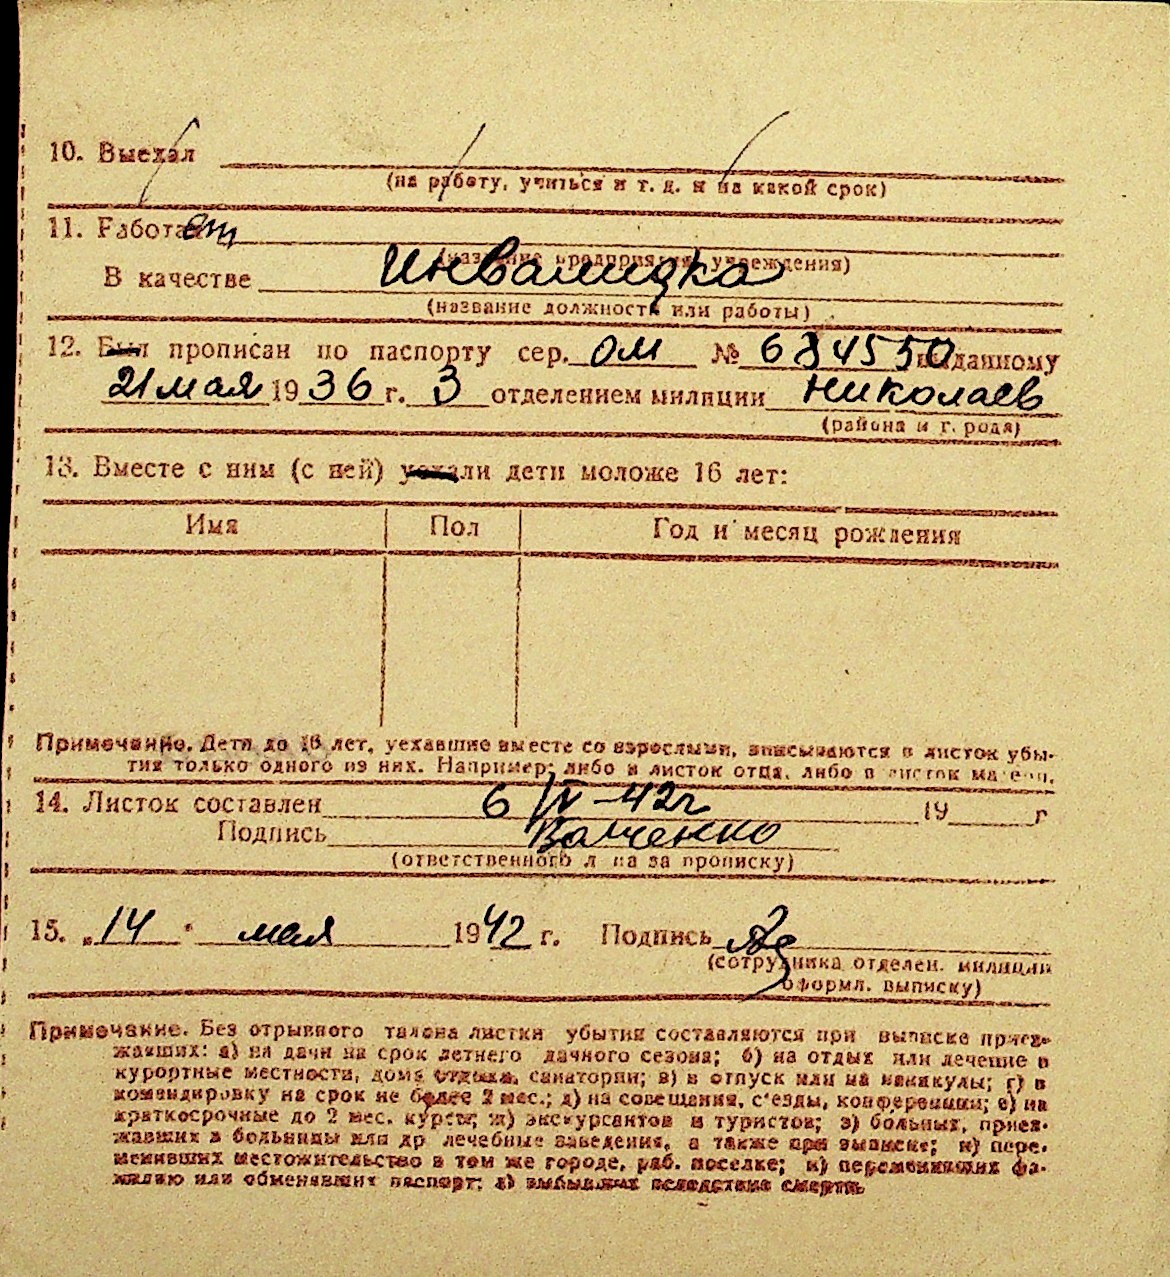 10. Выехал
(на работу, учиться и т. д. и на какой срок)
11. Работает
(название предприятия, учреждения)
В качестве Инвалидка
(название должности или работы)
12. Был прописан по паспорту сер. ОМ № 684550 выданному
21 мая 1936 г. 3 отделением милиции Николаев
(района и г. рода)
13. Вместе с ним (с ней) уехали дети моложе 16 лет:
Имя Пол Год и месяц рождения
Примечание. Дети до 16 лет, уехавшие вместе со взрослыми, вписываются в листок убы-
тия только одного из них. Например: либо в листок отца, либо в листок матери.
14. Листок составлен 6 IV-42г 19 г
Подпись
(ответственного л ца за прописку)
15. „14" мая 1942 г. Подпись
(сотрудника отделен. милиции
оформл. выписку)
Примечание. Без отрывного талона листки убытия составляются при выписке приез-
жавших: а) на дачи на срок летнего дачного сезона; б) на отдых или лечение в
курортные местности, дома отдыха, санатории; в) в отпуск или на каникулы; г) в
командировку на срок не более 2 мес.; д) на совещания, с'езды, конференции; е) на
краткосрочные до 2 мес. курсы; ж) экскурсантов и туристов; з) больных, приез-
жавших в больницы или др лечебные заведения, а также при выписке; и) пере-
менивших местожительство в том же городе, раб. поселке; к) переменивших фа-
милию или обменявших паспорт; л) выбывших вследствие смерти